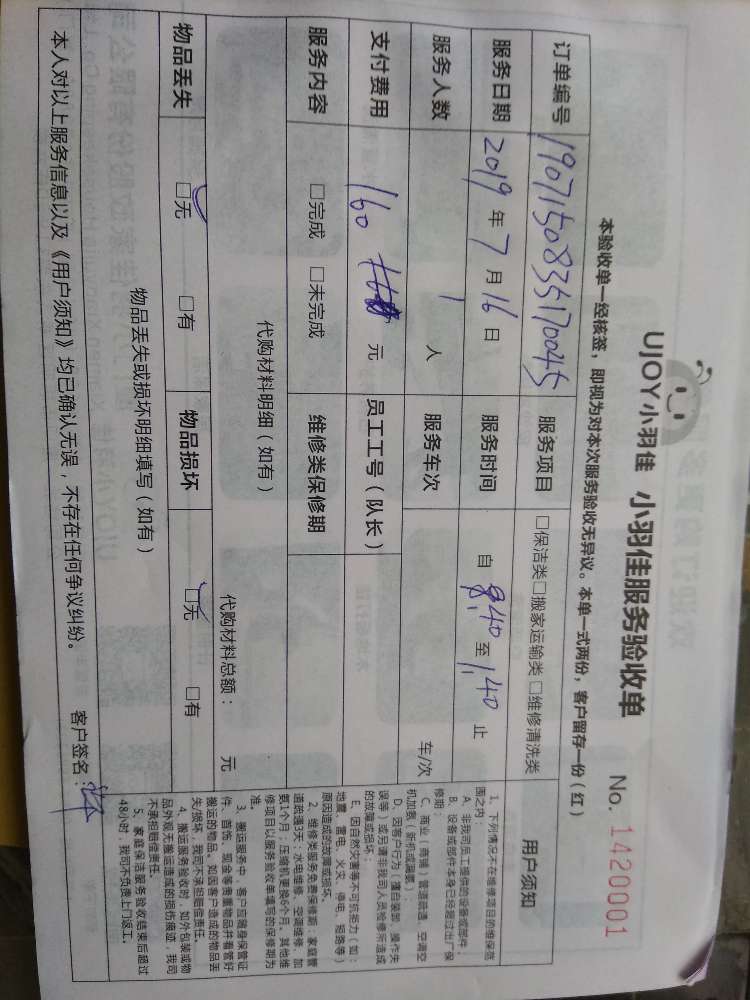 UJOY小羽佳 小羽佳服务验收单 No. 1420001
本验收单一经核签，即视为对本次服务验收无异议。本单一式两份，客户留存一份（红）
订单编号 1907150835170045 服务项目 □保洁类□搬家运输类□维修清洗类
服务日期 2019年7月16日 服务时间 自 8:40 至 1:40 止
服务人数 1 人 服务车次 车/次
支付费用 160 元 员工工号（队长）
服务内容 □完成 □未完成 维修类保修期
代购材料明细（如有）
代购材料总额： 元
物品丢失 □无 □有 物品损坏 □无 □有
物品丢失或损坏明细填写（如有）
本人对以上服务信息以及《用户须知》均已确认无误，不存在任何争议纠纷。
客户签名：
用户须知
1、下列情况不在维修项目的维保范
围之内：
A、非我司员工提供的设备或部件；
B、设备或部件本身已经超过出厂保
修期；
C、商业（商铺）管道疏通、空调空
机加氨（新机或漏氨）；
D、因客户行为（擅自装卸、操作失
误等）或另请非我司人员检修所造成
的故障或损坏；
E、因自然灾害等不可抗拒力（如：
地震、雷电、火灾、停电、短路等）
原因造成的故障或损坏。
2、维修类服务免费保修期：家庭管
道疏通3天；水电维修、空调维修、加
氨1个月；压缩机更换6个月。其他维
修项目以服务验收单填写的保修期为
准。
3、搬运服务中，客户应随身保管证
件、首饰、现金等贵重物品并看管好
搬运的物品。如因客户造成的物品丢
失/损坏，我司不承担赔偿责任。
4、搬运服务验收时，如外包装或物
品外观无搬运造成的损伤痕迹，我司
不承担赔偿责任。
5、家庭保洁服务验收结束后超过
48小时，我司不负责上门返工。